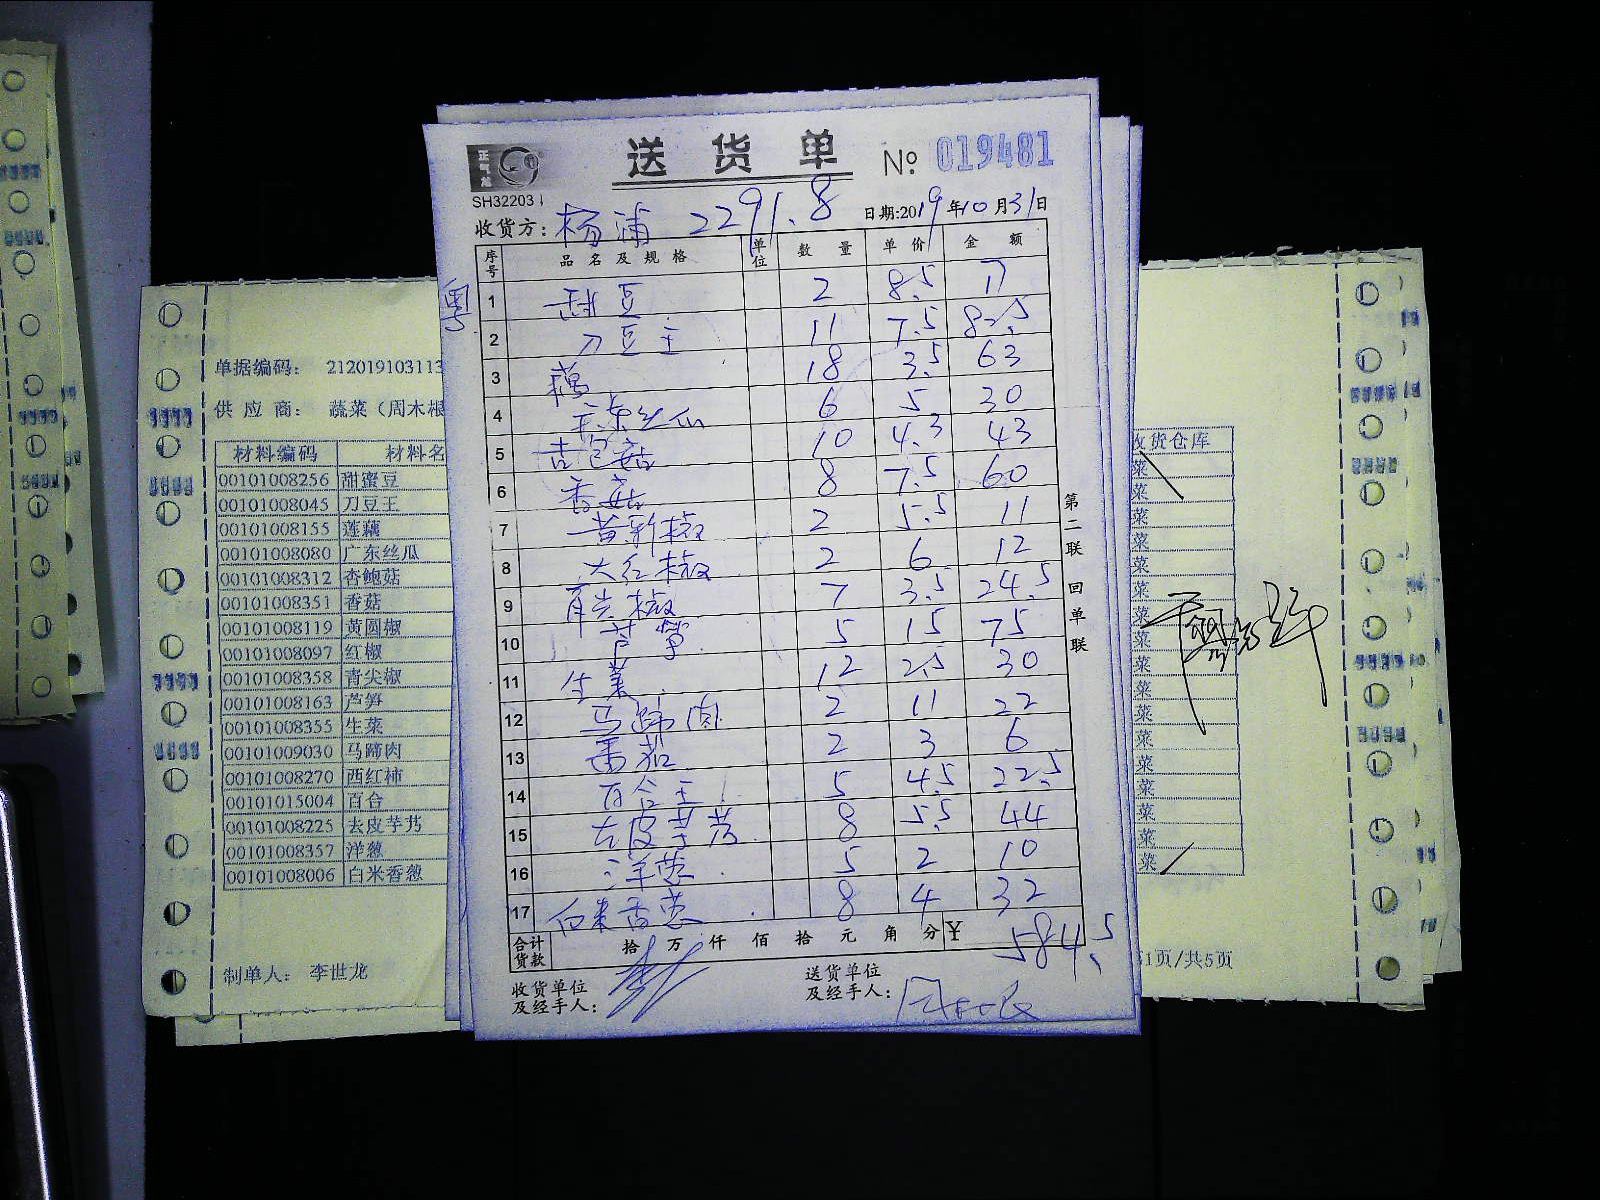 正气龙
送货单 № 019481
SH32203
收货方: 杨浦 2291.8 日期:2019年10月31日
粤
序号 品名及规格 单位 数量 单价 金额
1 甜豆 2 8.5 17
2 刀豆王 11 7.5 82.5
3 藕 18 3.5 63
4 广东丝瓜 6 5 30
5 杏包菇 10 4.3 43
6 香菇 8 7.5 60
7 黄彩椒 2 5.5 11
8 大红椒 2 6 12
9 青尖椒 7 3.5 24.5
10 芦笋 5 15 75
11 生菜 12 2.5 30
12 马蹄肉 2 11 22
13 番茄 2 3 6
14 百合王 5 4.5 22.5
15 去皮芋艿 8 5.5 44
16 洋葱 5 2 10
17 白米香葱 8 4 32
合计货款 拾 万 仟 佰 拾 元 角 分 ¥ 584.5
收货单位及经手人:
送货单位及经手人:
第二联 回单联
单据编码: 212019103113
供应商: 蔬菜(周木根
材料编码 材料名
00101008256 甜蜜豆
00101008045 刀豆王
00101008155 莲藕
00101008080 广东丝瓜
00101008312 杏鲍菇
00101008351 香菇
00101008119 黄圆椒
00101008097 红椒
00101008358 青尖椒
00101008163 芦笋
00101008355 生菜
00101009030 马蹄肉
00101008270 西红柿
00101015004 百合
00101008225 去皮芋艿
00101008357 洋葱
00101008006 白米香葱
制单人: 李世龙
收货仓库
菜
菜
菜
菜
菜
菜
菜
菜
菜
菜
菜
菜
菜
菜
菜
菜
菜
第1页/共5页